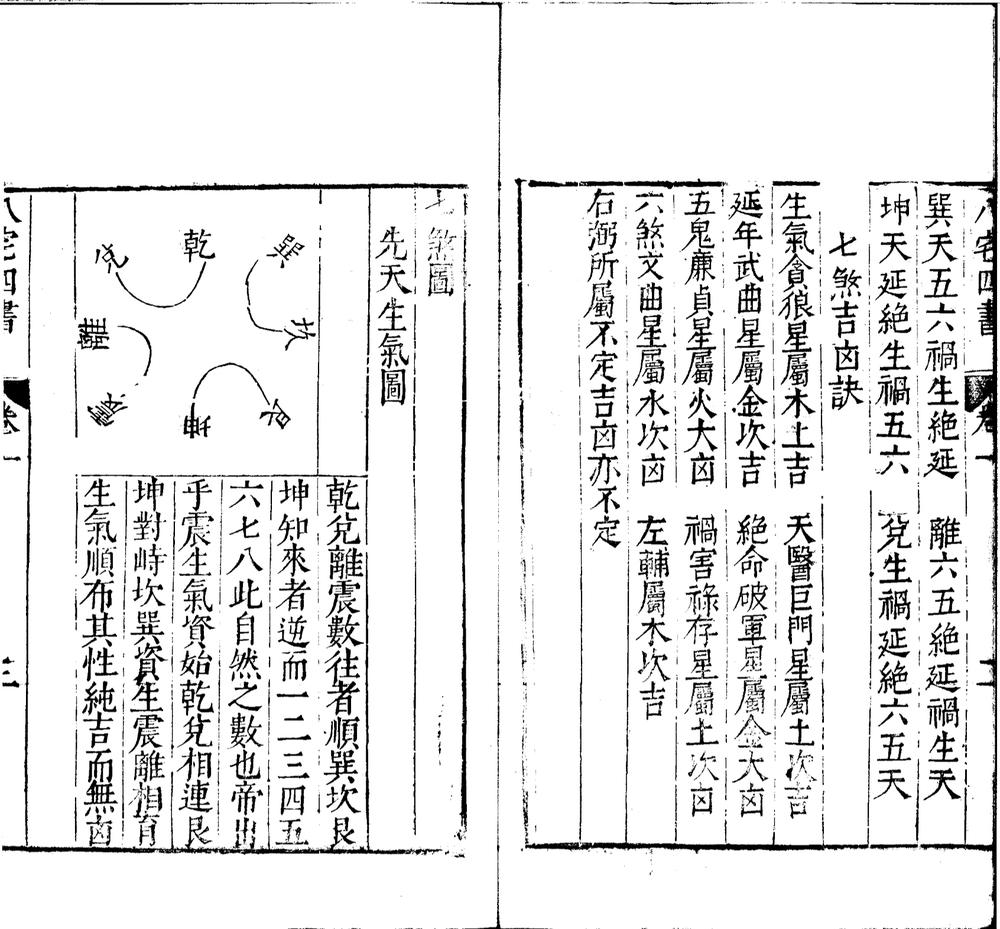 八宅四書 卷一 二
巽天五六禍生絶延 離六五絶延禍生天
坤天延絶生禍五六 兌生禍延絶六五天
七煞吉凶訣
生氣貪狼星屬木上吉 天醫巨門星屬土次吉
延年武曲星屬金次吉 絶命破軍星屬金大凶
五鬼亷貞星屬火大凶 禍害祿存星屬土次凶
六煞文曲星屬水次凶 左輔屬木次吉
右弼所屬不定吉凶亦不定
七煞圖
先天生氣圖
巽
乾
兌
坎
離
艮
坤
震
乾兌離震數往者順巽坎艮
坤知來者逆而一二三四五
六七八此自然之數也帝出
乎震生氣資始乾兌相連艮
坤對峙坎巽資生震離相育
生氣順布其性純吉而無凶
八宅四書 卷一 三